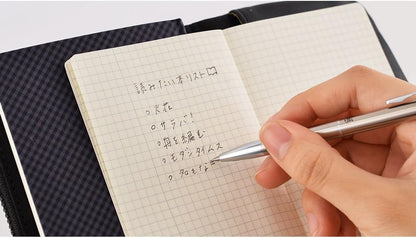 読みたい本リスト
○ 火花
○ サラバ!
○ 舟を編む
○ モダンタイムス